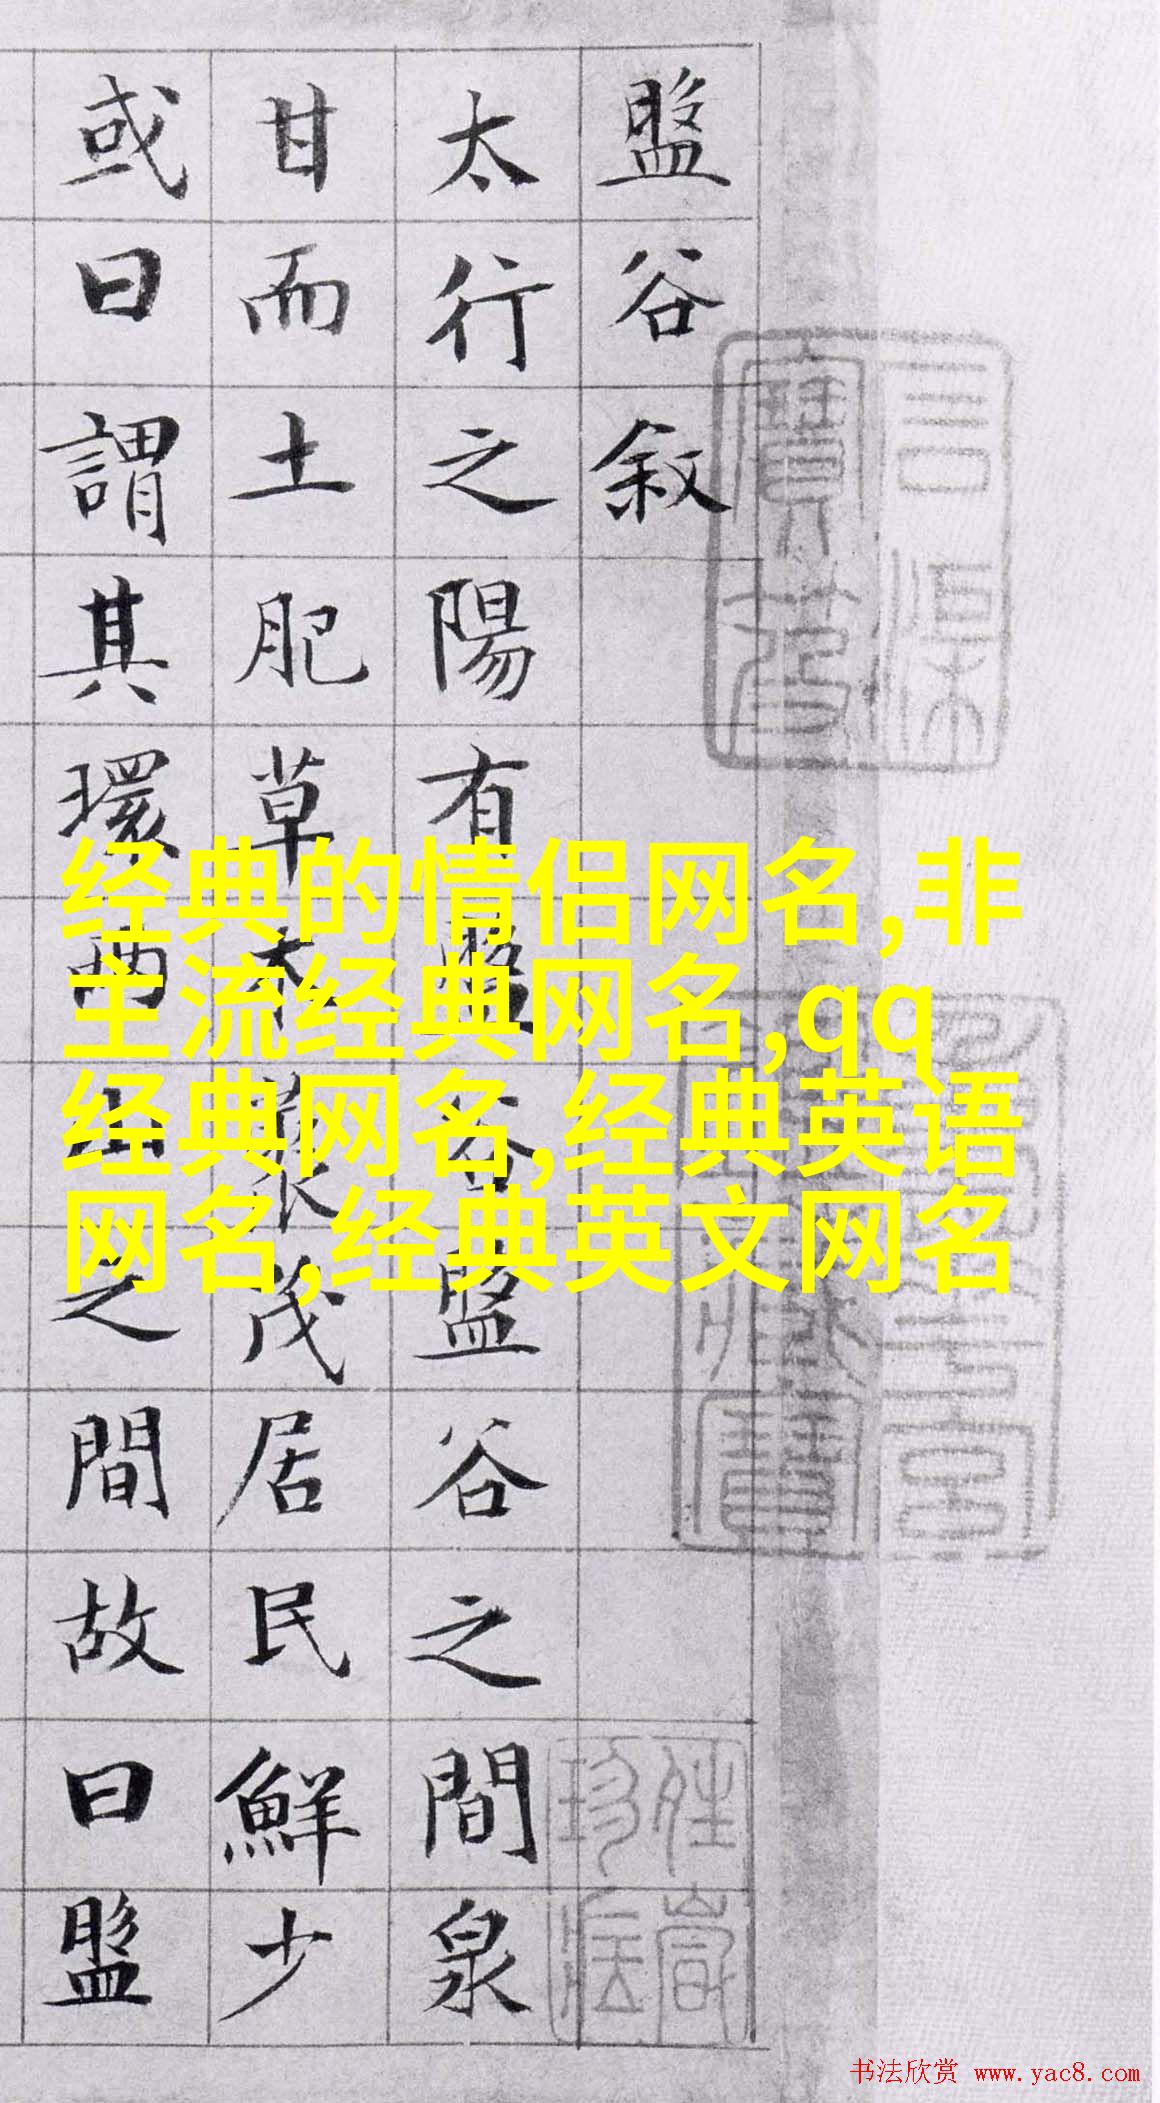 盤谷敘
太行之陽有盤谷盤谷之間泉
甘而土肥草木藂茂居民鮮少
或曰謂其環兩山之間故曰盤
经典的情侣网名,非
主流经典网名,qq
经典网名,经典英语
网名,经典英文网名
书法欣赏 www.yac8.com